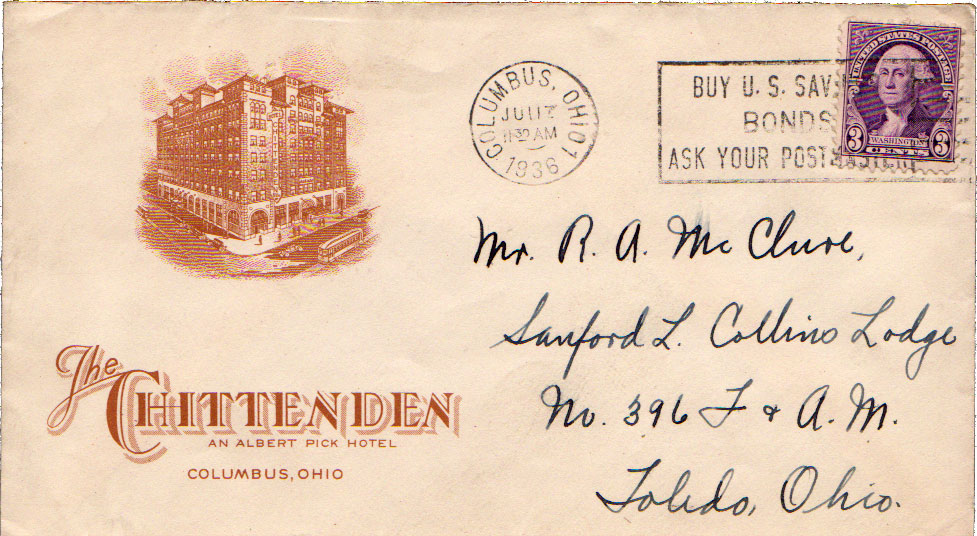 COLUMBUS, OHIO 1
11 30 AM
1936
BUY U. S. SAV
BONDS
ASK YOUR POSTMASTER
UNITED STATES POSTAGE
3 WASHINGTON 3
CENTS
Mr. R. A. McClure,
Sanford L. Collins Lodge
No. 396 F & A. M.
Toledo, Ohio.
The
CHITTENDEN
AN ALBERT PICK HOTEL
COLUMBUS, OHIO